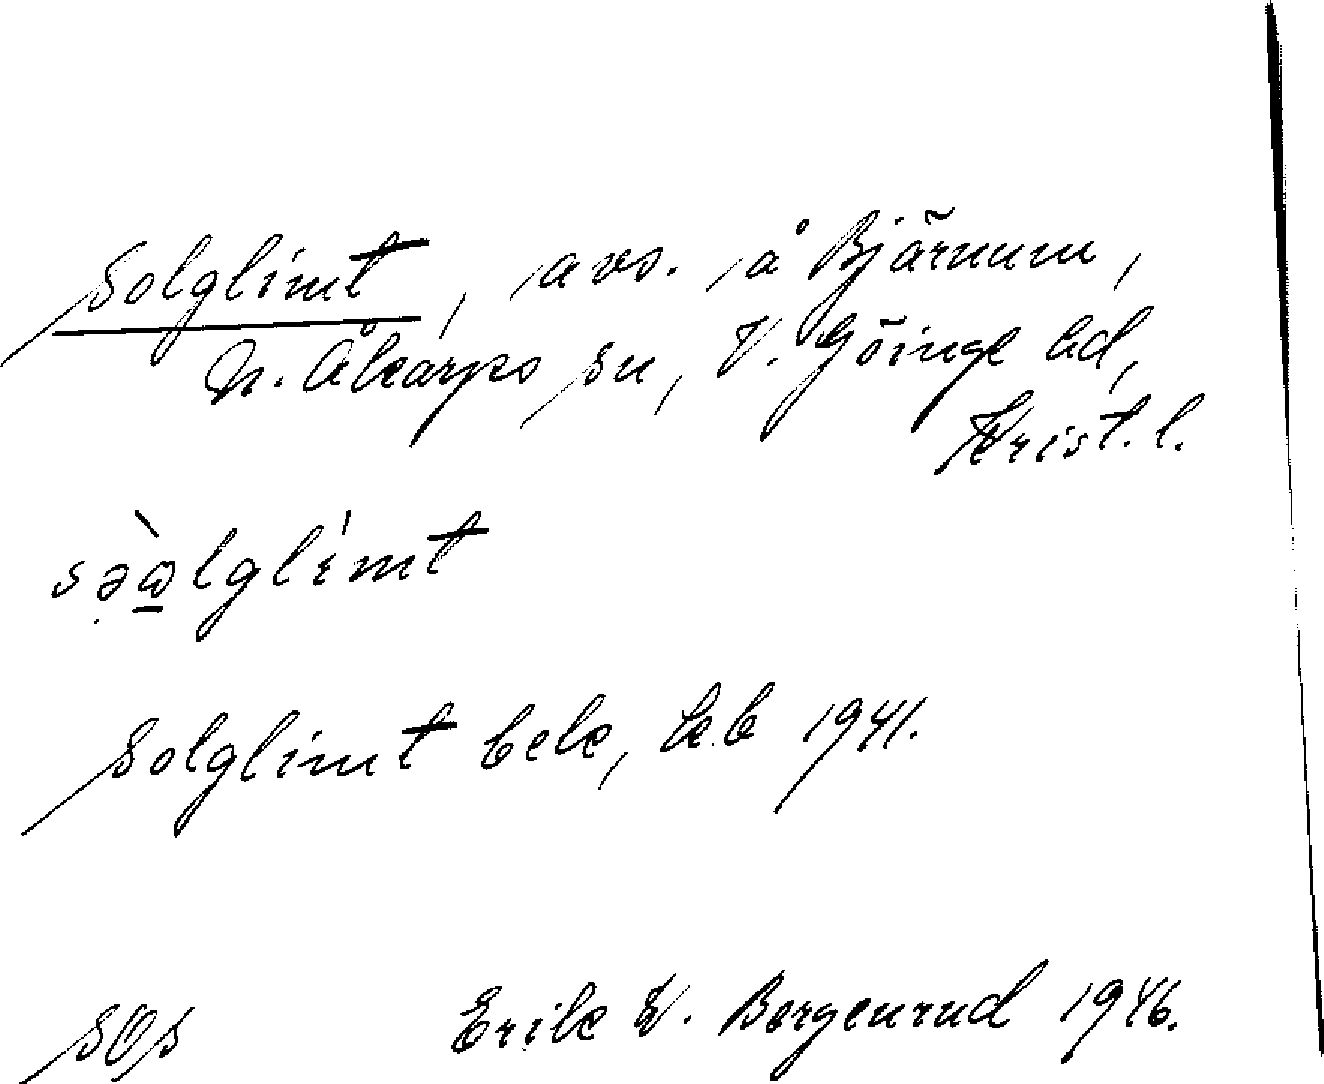 Solglimt, avs. å Bjärnum,
N. Åkarps sn, V. Göinge hd,
Krist. l.
sə̀ω̲lglímt
Solglimt bek, kb 1941.
SOS Erik W. Bergenrud 1946.